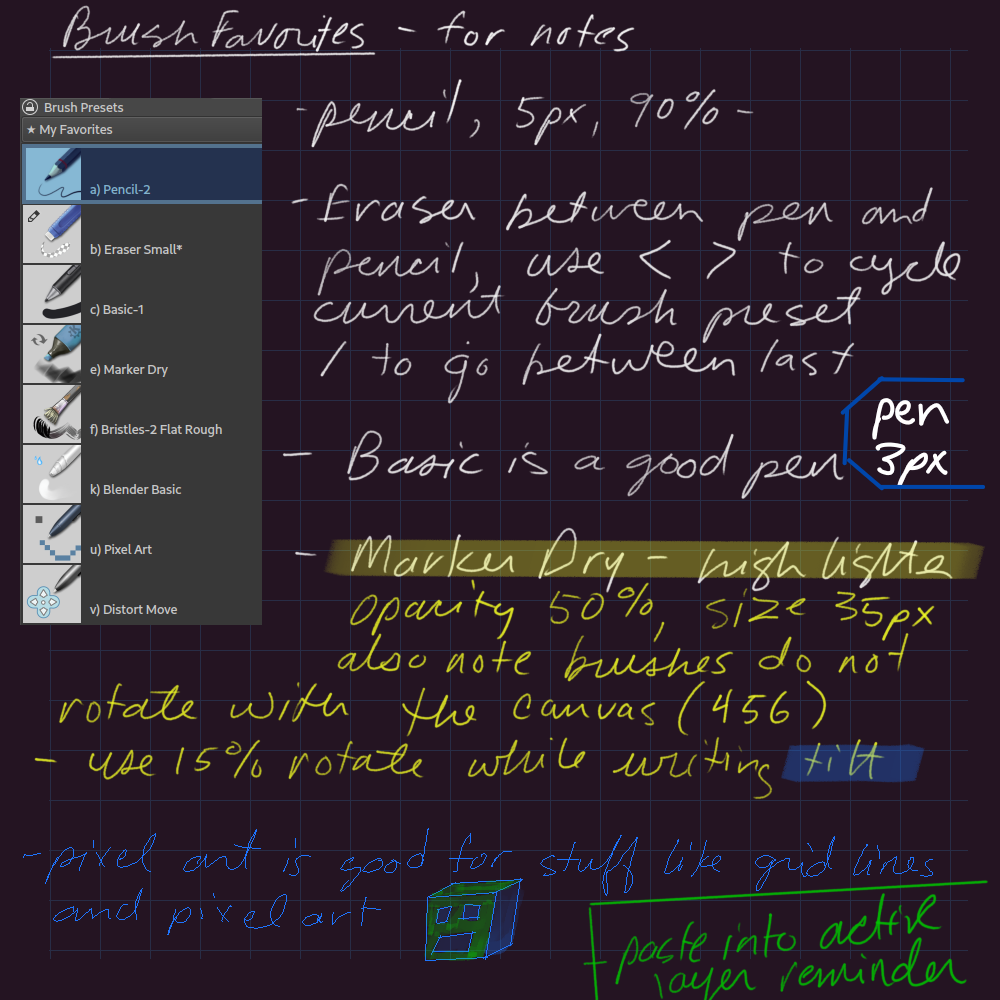 Brush Favorites - for notes
Brush Presets
★ My Favorites
a) Pencil-2
b) Eraser Small*
c) Basic-1
e) Marker Dry
f) Bristles-2 Flat Rough
k) Blender Basic
u) Pixel Art
v) Distort Move
- pencil, 5px, 90% -
- Eraser between pen and
pencil, use < > to cycle
current brush preset
/ to go between last
- Basic is a good pen
pen
3px
- Marker Dry - highlighte
opacity 50%, size 35px
also note brushes do not
rotate with the canvas (456)
- use 15% rotate while writing tilt
- pixel art is good for stuff like grid lines
and pixel art
paste into active
layer reminder